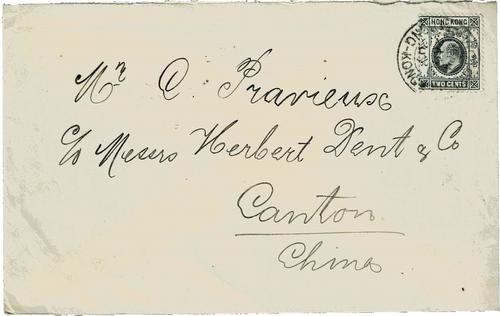 HONG KONG
TWO CENTS
Mr C. Pravieux
c/o Messrs Herbert Dent & Co
Canton
China